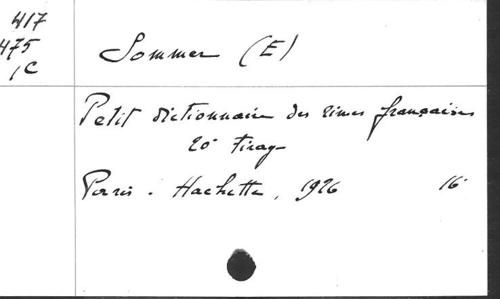 417
475
1C
Sommer (E)
Petit dictionnaire des rimes françaises
20e tirage
Paris. Hachette, 1926 16°